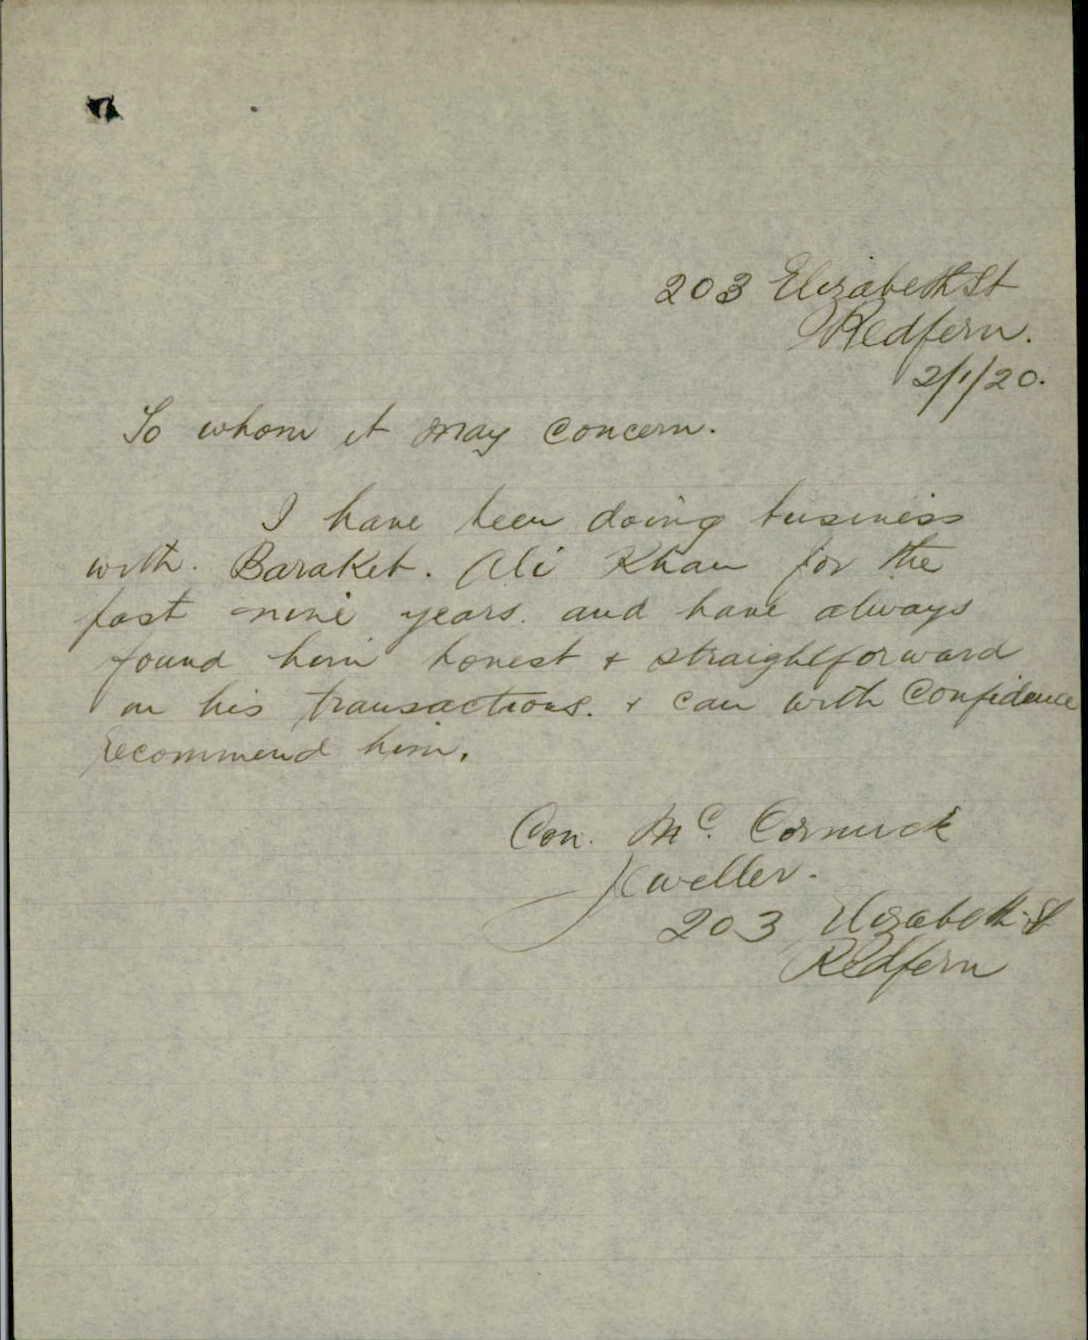 203 Elizabeth St
Redfern.
2/1/20.
To whom it may concern.
I have been doing business
with. Baraket. Ali Khan for the
past nine years. and have always
found him honest & straightforward
in his transactions. & can with Confidence
recommend him.
Con. Mc. Cormick
Jeweller.
203 Elizabeth St
Redfern